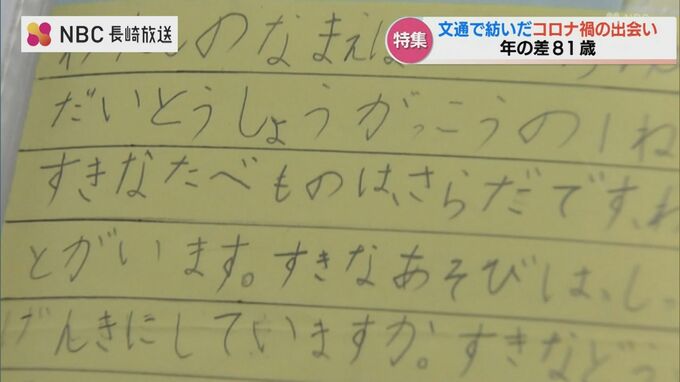 NBC 長崎放送
特集
文通で紡いだコロナ禍の出会い
年の差81歳
わたしのなまえは
だいとうしょうがっこうの1ね
すきなたべものは、さらだです、わ
とがいます。すきなあそびは、し
げんきにしていますか。すきなどう